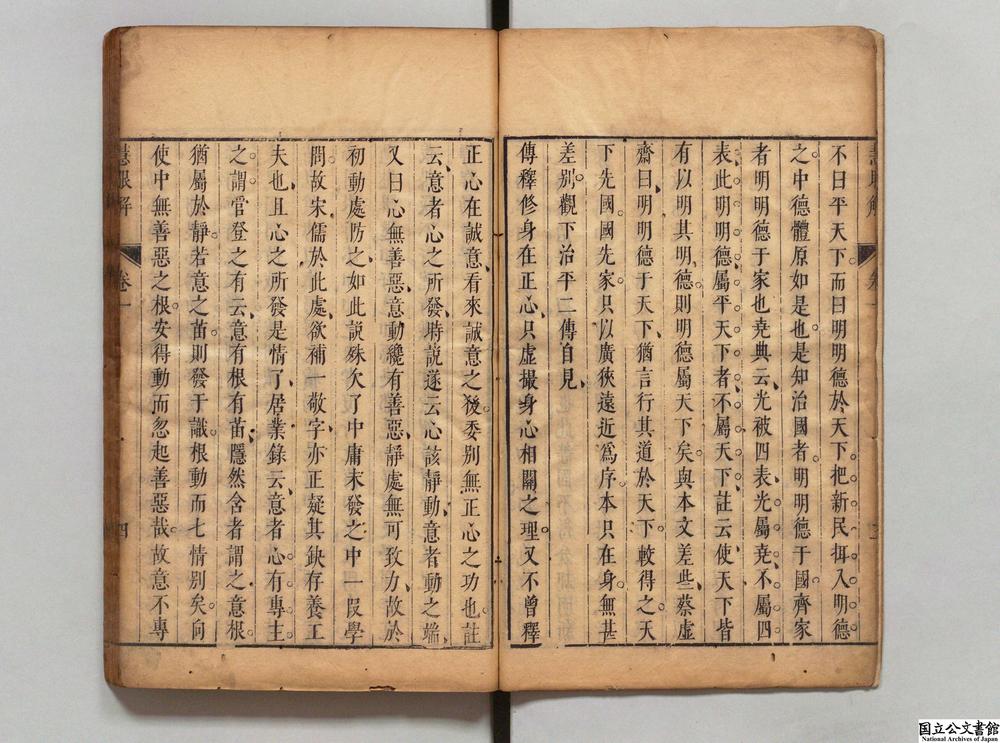 不曰平天下而曰明明德於天下把新民揖入明德
之中德體原如是也是知治國者明明德于國齊家
者明明德于家也堯典云光被四表光屬堯不屬四
表此明明德屬平天下者不屬天下註云使天下皆
有以明其明德則明德屬天下矣與本文差些蔡虛
齋曰明明德于天下猶言行其道於天下較得之天
下先國國先家只以廣狹遠近爲序本只在身無甚
差別觀下治平二傳自見
傳釋修身在正心只虛撮身心相關之理又不曾釋
正心在誠意看來誠意之後委別無正心之功也註
云意者心之所發時說遂云心該靜動意者動之端
又曰心無善惡意動纔有善惡靜處無可致力故於
初動處防之如此說殊欠了中庸未發之中一段學
問故宋儒於此處欲補一敬字亦正疑其缺存養工
夫也且心之所發是情了居業錄云意者心有專主
之謂管登之有云意有根有苗隱然含者謂之意根
猶屬於靜若意之苗則發于識根動而七情別矣向
使中無善惡之根安得動而忽起善惡哉故意不專
慧眼解
卷一
四
国立公文書館
National Archives of Japan